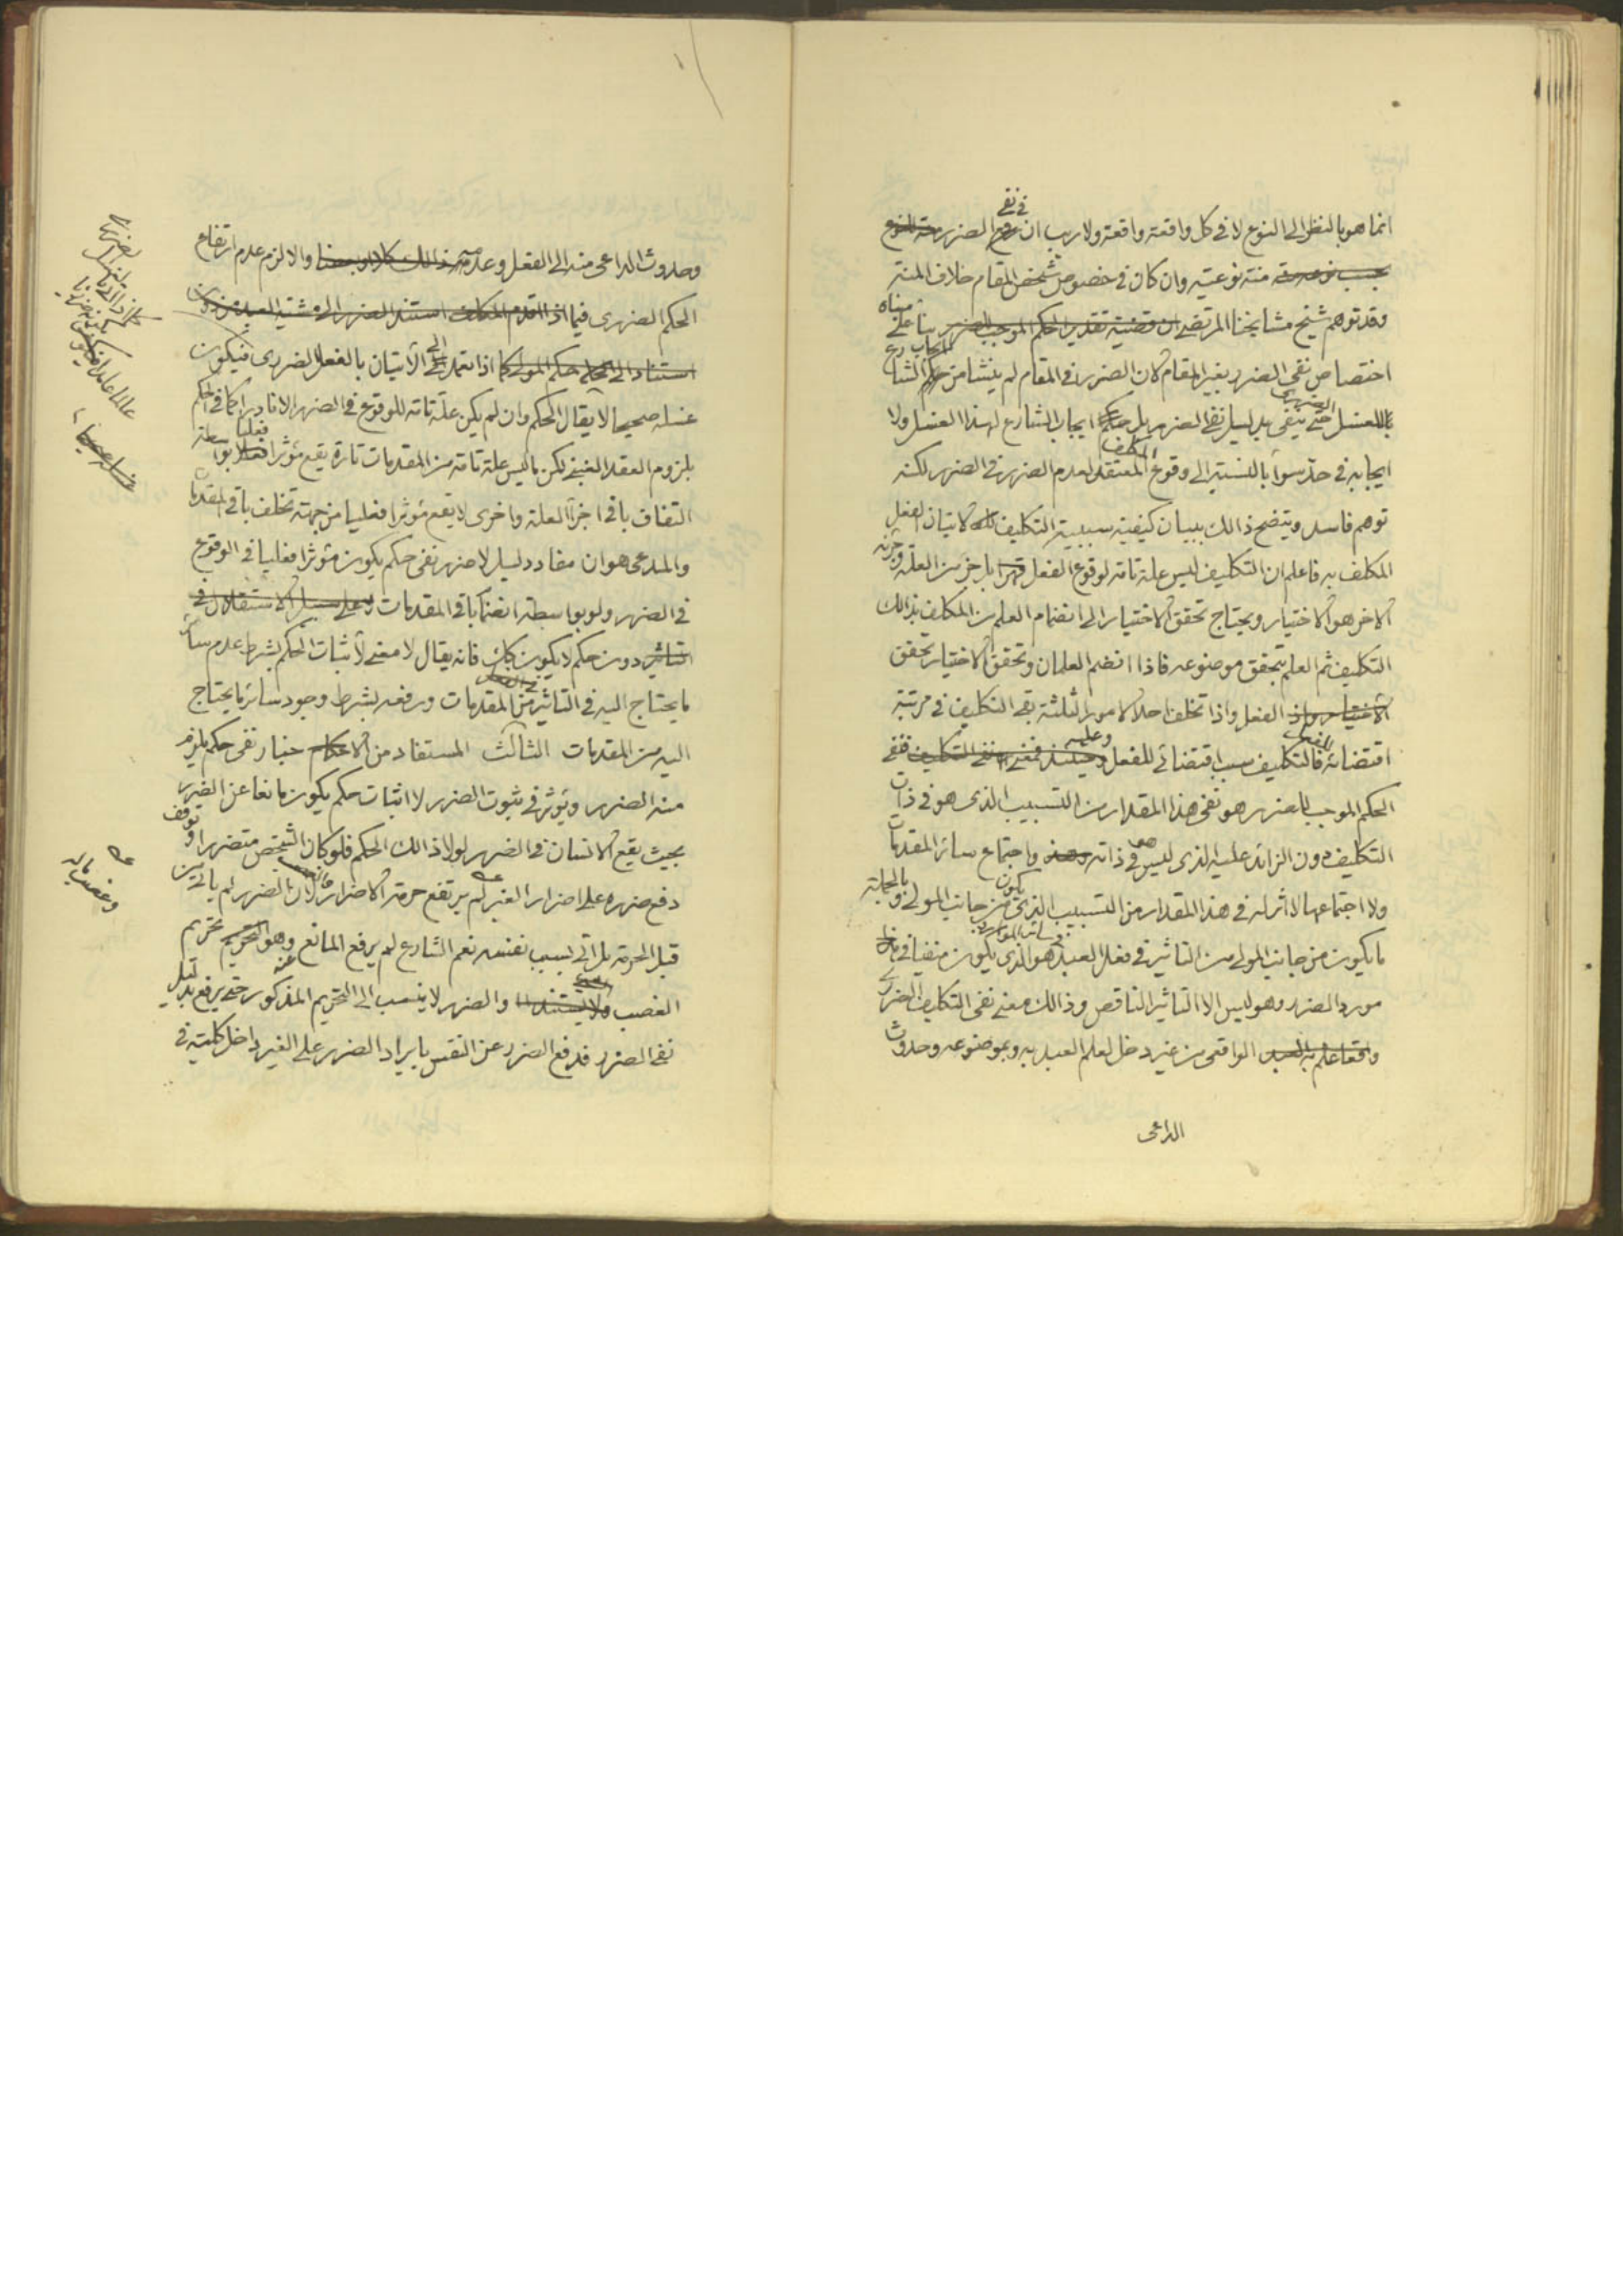 انما هو بالنظر الى النوع لا فى كل واقعة واقعة ولا ريب ان فى نفى الضرر
منة نوعية وان كان فى خصوص شخص المقام خلاف المنة
وقد توهم شيخ مشايخنا المرتضى بناء على مبناه
اختصاص نفى الضرر بغير المقام لان الضرر فى المقام لم ينشا من ايجاب الشارع
للغسل الضررى حتى ينفى بدليل نفى الضرر بل ايجاب الشارع لهذا الغسل ولا
ايجابه فى حد سواء بالنسبة الى وقوع المكلف المعتقد لعدم الضرر فى الضرر لكنه
توهم فاسد ويتضح ذالك ببيان كيفية سببية التكليف لاتيان الفعل
المكلف به فاعلم ان التكليف ليس علة تامة لوقوع الفعل بل جزء من العلة وجزئه
الاخر هو الاختيار ويحتاج تحقق الاختيار الى انضمام العلم من المكلف بذالك
التكليف ثم العلم بتحقق موضوعه فاذا انضم العلمان وتحقق الاختيار تحقق
الفعل واذا تخلف احد الامور الثلثة بقى التكليف فى مرتبة
اقتضائه للفعل فالتكليف سبب اقتضائى للفعل وعليه فنفى
الحكم الموجب للضرر هو نفى هذا المقدار من التسبيب الذى هو فى ذات
التكليف دون الزائد عليه الذى ليس هو فى ذاته واجتماع سائر المقدمات
ولا اجتماعها لا اثر له فى هذا المقدار من التسبيب الذى يكون من جانب المولى وبالجملة
ما يكون من جانب المولى من التاثير فى فعل العبد فى سائر الموارد هو الذى يكون منفيا فى
مورد الضرر وهو ليس الا التاثير الناقص وذالك معنى نفى التكليف الضررى
الواقعى من غير دخل لعلم العبد به وبموضوعه وحدوث
الداعى
وحدوث الداعى منه الى الفعل وعدمه والا لزم عدم ارتفاع
الحكم الضررى فيما اذا
اذا تعمد الى الاتيان بالفعل الضررى فيكون
غسله صحيحا لا يقال الحكم وان لم يكن علة تامة للوقوع فى الضرر الا نادرا كما فى الحكم
بلزوم العقد الغبنى لكن ما ليس علة تامة من المقدمات تارة يقع مؤثرا فعليا بواسطة
التفاف باقى اجزاء العلة واخرى لا يقع مؤثرا فعليا من جهة تخلف باقى المقدمات
والمدعى هو ان مفاد دليل لا ضرر نفى حكم يكون مؤثرا فعليا فى الوقوع
فى الضرر ولو بواسطة انضمام باقى المقدمات
دون حكم لا يكون كك فانه يقال لا معنى لاثبات الحكم بشرط عدم سائر
ما يحتاج اليه فى التاثير من المقدمات ورفعه بشرط وجود سائر ما يحتاج
اليه من المقدمات الثالث المستفاد من اخبار نفى حكم يلزم
منه الضرر ويؤثر فى ثبوت الضرر لا اثبات حكم يكون مانعا عن الضرر
بحيث يقع الانسان فى الضرر لولا ذالك الحكم فلو كان الشخص متضررا وتوقف
دفع ضرره على اضرار الغير لم يرتفع حرمة الاضرار لان الضرر لم يات من
قبل الحرمة بل اتى بسبب نفسه نعم الشارع لم يرفع المانع عنه وهو تحريم
الغصب والضرر لا ينسب الى التحريم المذكور حتى يرفع بدليل
نفى الضرر فدفع الضرر عن النفس بايراد الضرر على الغير داخل كلية فى
وغصب ماله